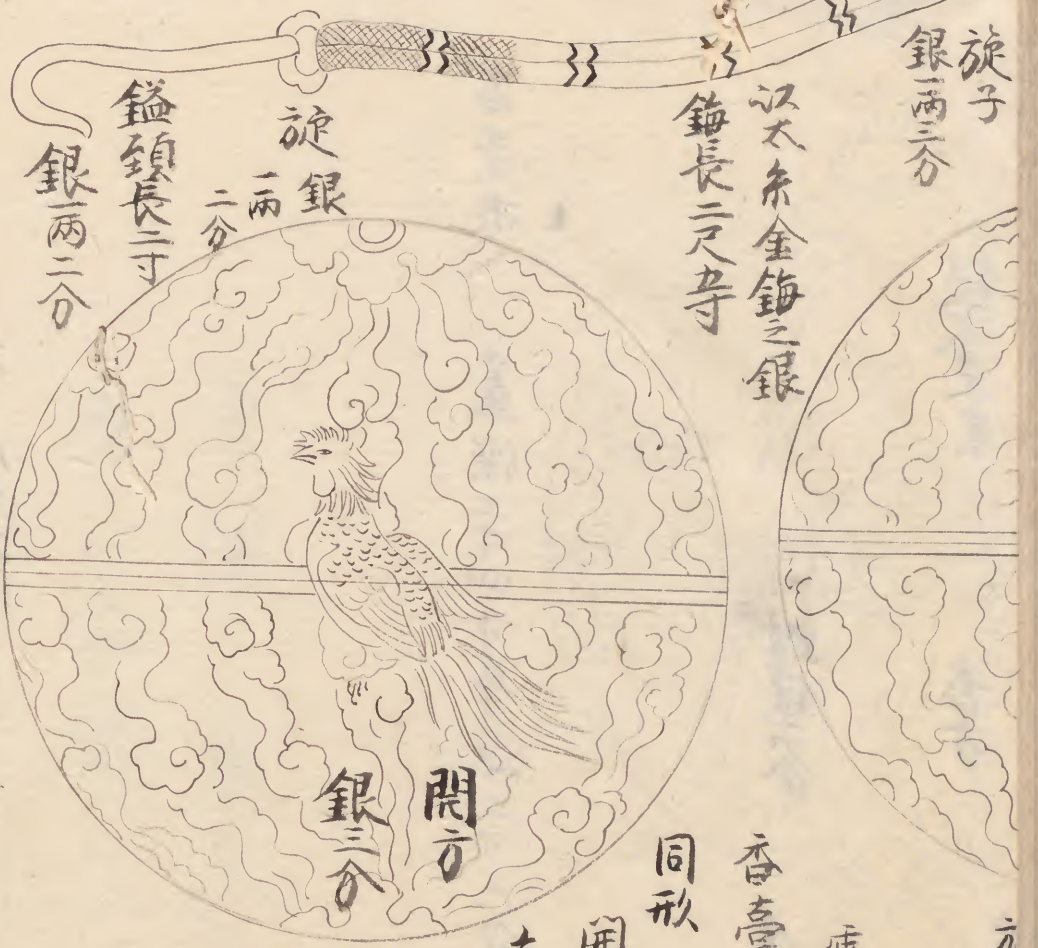 旋子
銀一両三分
以太糸金鋂之銀
鋂長二尺五寸
旋銀
一両
二分
鎰頸長二寸
銀一両二分
開方
銀三分
香臺
同形
開